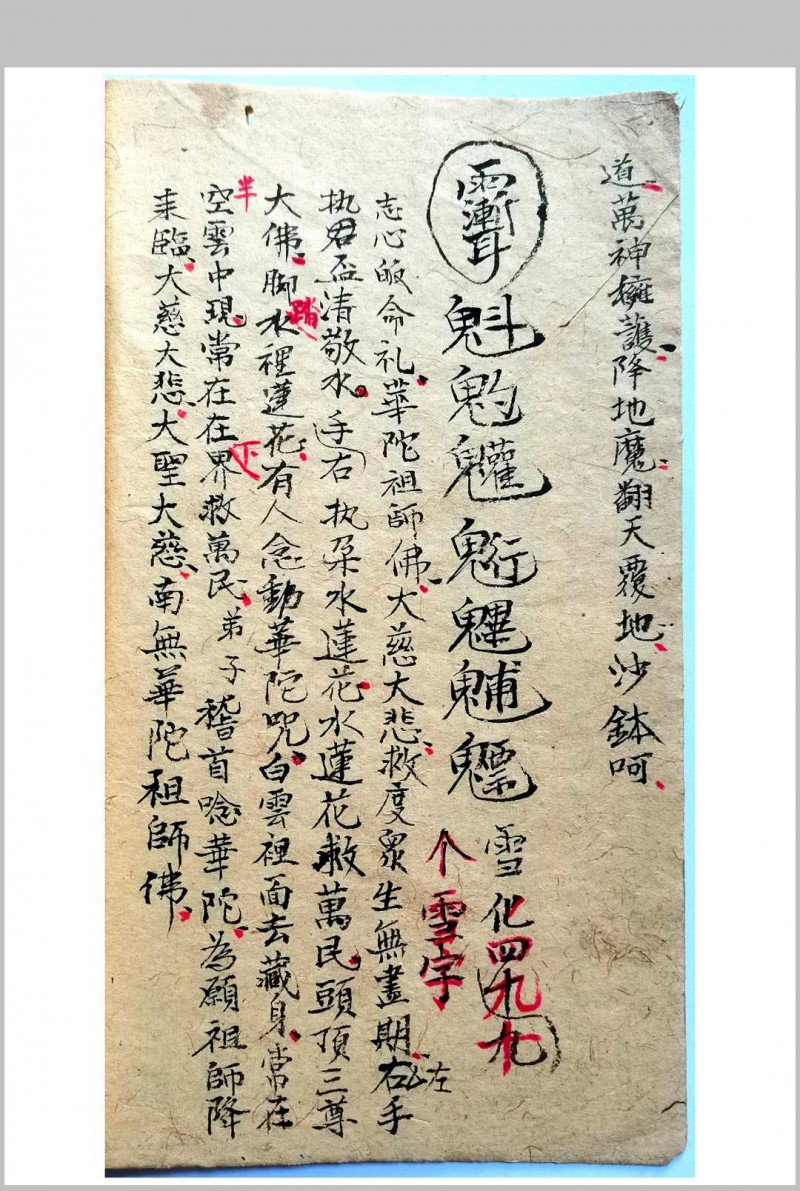 道萬神擁護降地魔翻天覆地沙鉢呵
魁魀䰧魒雪化四九九
个雪字
志心皈命礼華陀祖師佛大慈大悲救度衆生無盡期右左手
执君盃清敬水手右执朶水蓮花水蓮花救萬民頭頂三尊
大佛脚踏水裡蓮花有人念動華陀咒白雲裡面去藏身常在
半空雲中現常在在下界救萬民弟子嵇首唸華陀為願祖師降
来臨大慈大悲大聖大慈南無華陀祖師佛